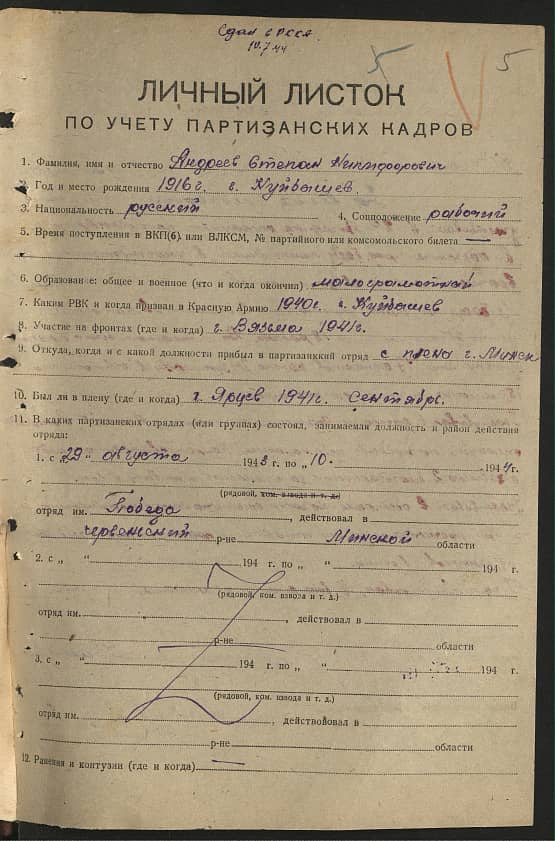 Сдал в РККА
10.7.44
5 5
ЛИЧНЫЙ ЛИСТОК
ПО УЧЕТУ ПАРТИЗАНСКИХ КАДРОВ
1. Фамилия, имя и отчество Андреев Степан Никифорович
2. Год и место рождения 1916 г. г. Куйбышев.
3. Национальность русский 4. Соцположение рабочий
5. Время поступления в ВКП(б) или ВЛКСМ, № партийного или комсомольского билета —
6. Образование: общее и военное (что и когда окончил) малограмотный
7. Каким РВК и когда призван в Красную Армию 1940г. г. Куйбышев
8. Участие на фронтах (где и когда) г. Вязьма 1941г.
9. Откуда, когда и с какой должности прибыл в партизанкий отряд с плена г. Минск
10. Был ли в плену (где и когда) г. Ярцев 1941г. сентябрь.
11. В каких партизанских отрядах (или группах) состоял, занимаемая должность и район действия
отряда:
1. с „29“ августа 1943 г. по „10. 1944 г.
(рядовой, ком. взвода и т. д.)
отряд им. Победа, действовал в
червенский р-не Минской области
2. с „ “ 194 г. по „ “ 194 г.
(рядовой, ком. взвода и т. д.)
отряд им. , действовал в
р-не области
3. с „ “ 194 г. по „ “ 194 г.
(рядовой, ком. взвода и т. д.)
отряд им. , действовал в
р-не области
12. Ранения и контузии (где и когда) —